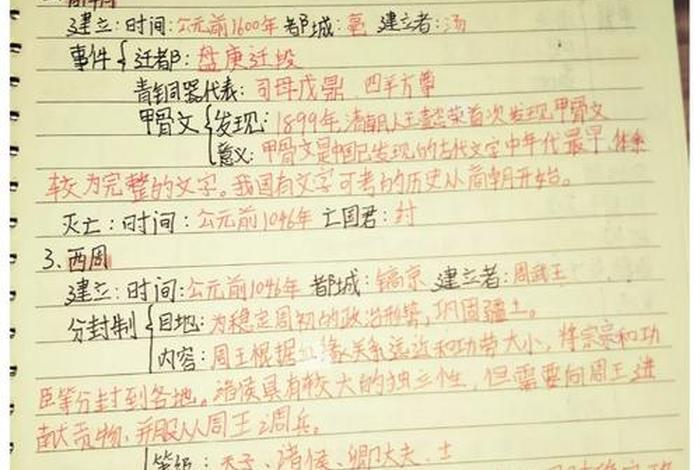 2.商朝
建立:时间:公元前1600年 都城:亳 建立者:汤
事件{迁都:盘庚迁殷
青铜器代表:司母戊鼎 四羊方尊
甲骨文{发现:1899年,清朝人王懿荣首次发现甲骨文
意义:甲骨文是中国已发现的古代文字中年代最早、体系
较为完整的文字。我国有文字可考的历史从商朝开始。
灭亡:时间:公元前1046年 亡国君:纣
3、西周
建立:时间:公元前1046年 都城:镐京 建立者:周武王
分封制{目地:为稳定周初的政治形势,巩固疆土。
内容:周王根据血缘关系远近和功劳大小,将宗亲和功
臣等分封到各地。诸侯具有较大的独立性,但需要向周王进
献贡物,并服从周王调兵。
等级:天子、诸侯、卿大夫、士